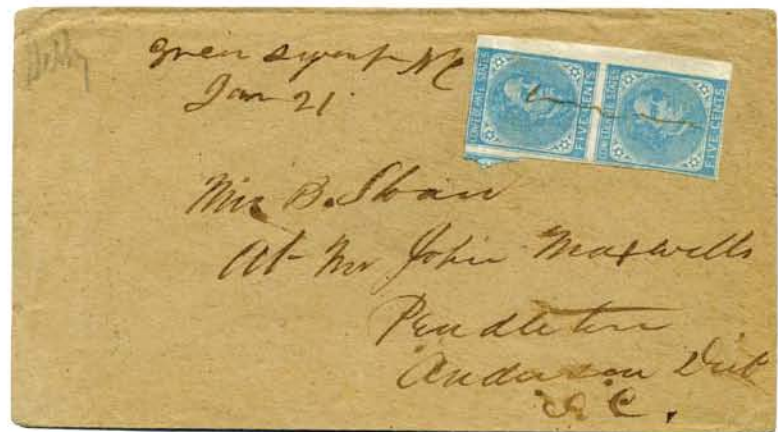 Green Swamp NC
Jan 21
CONFEDERATE STATES
FIVE CENTS
CONFEDERATE STATES
FIVE CENTS
Miss B. Sloan
At Mr John Maxwells
Pendleton
Anderson Dist
S. C.